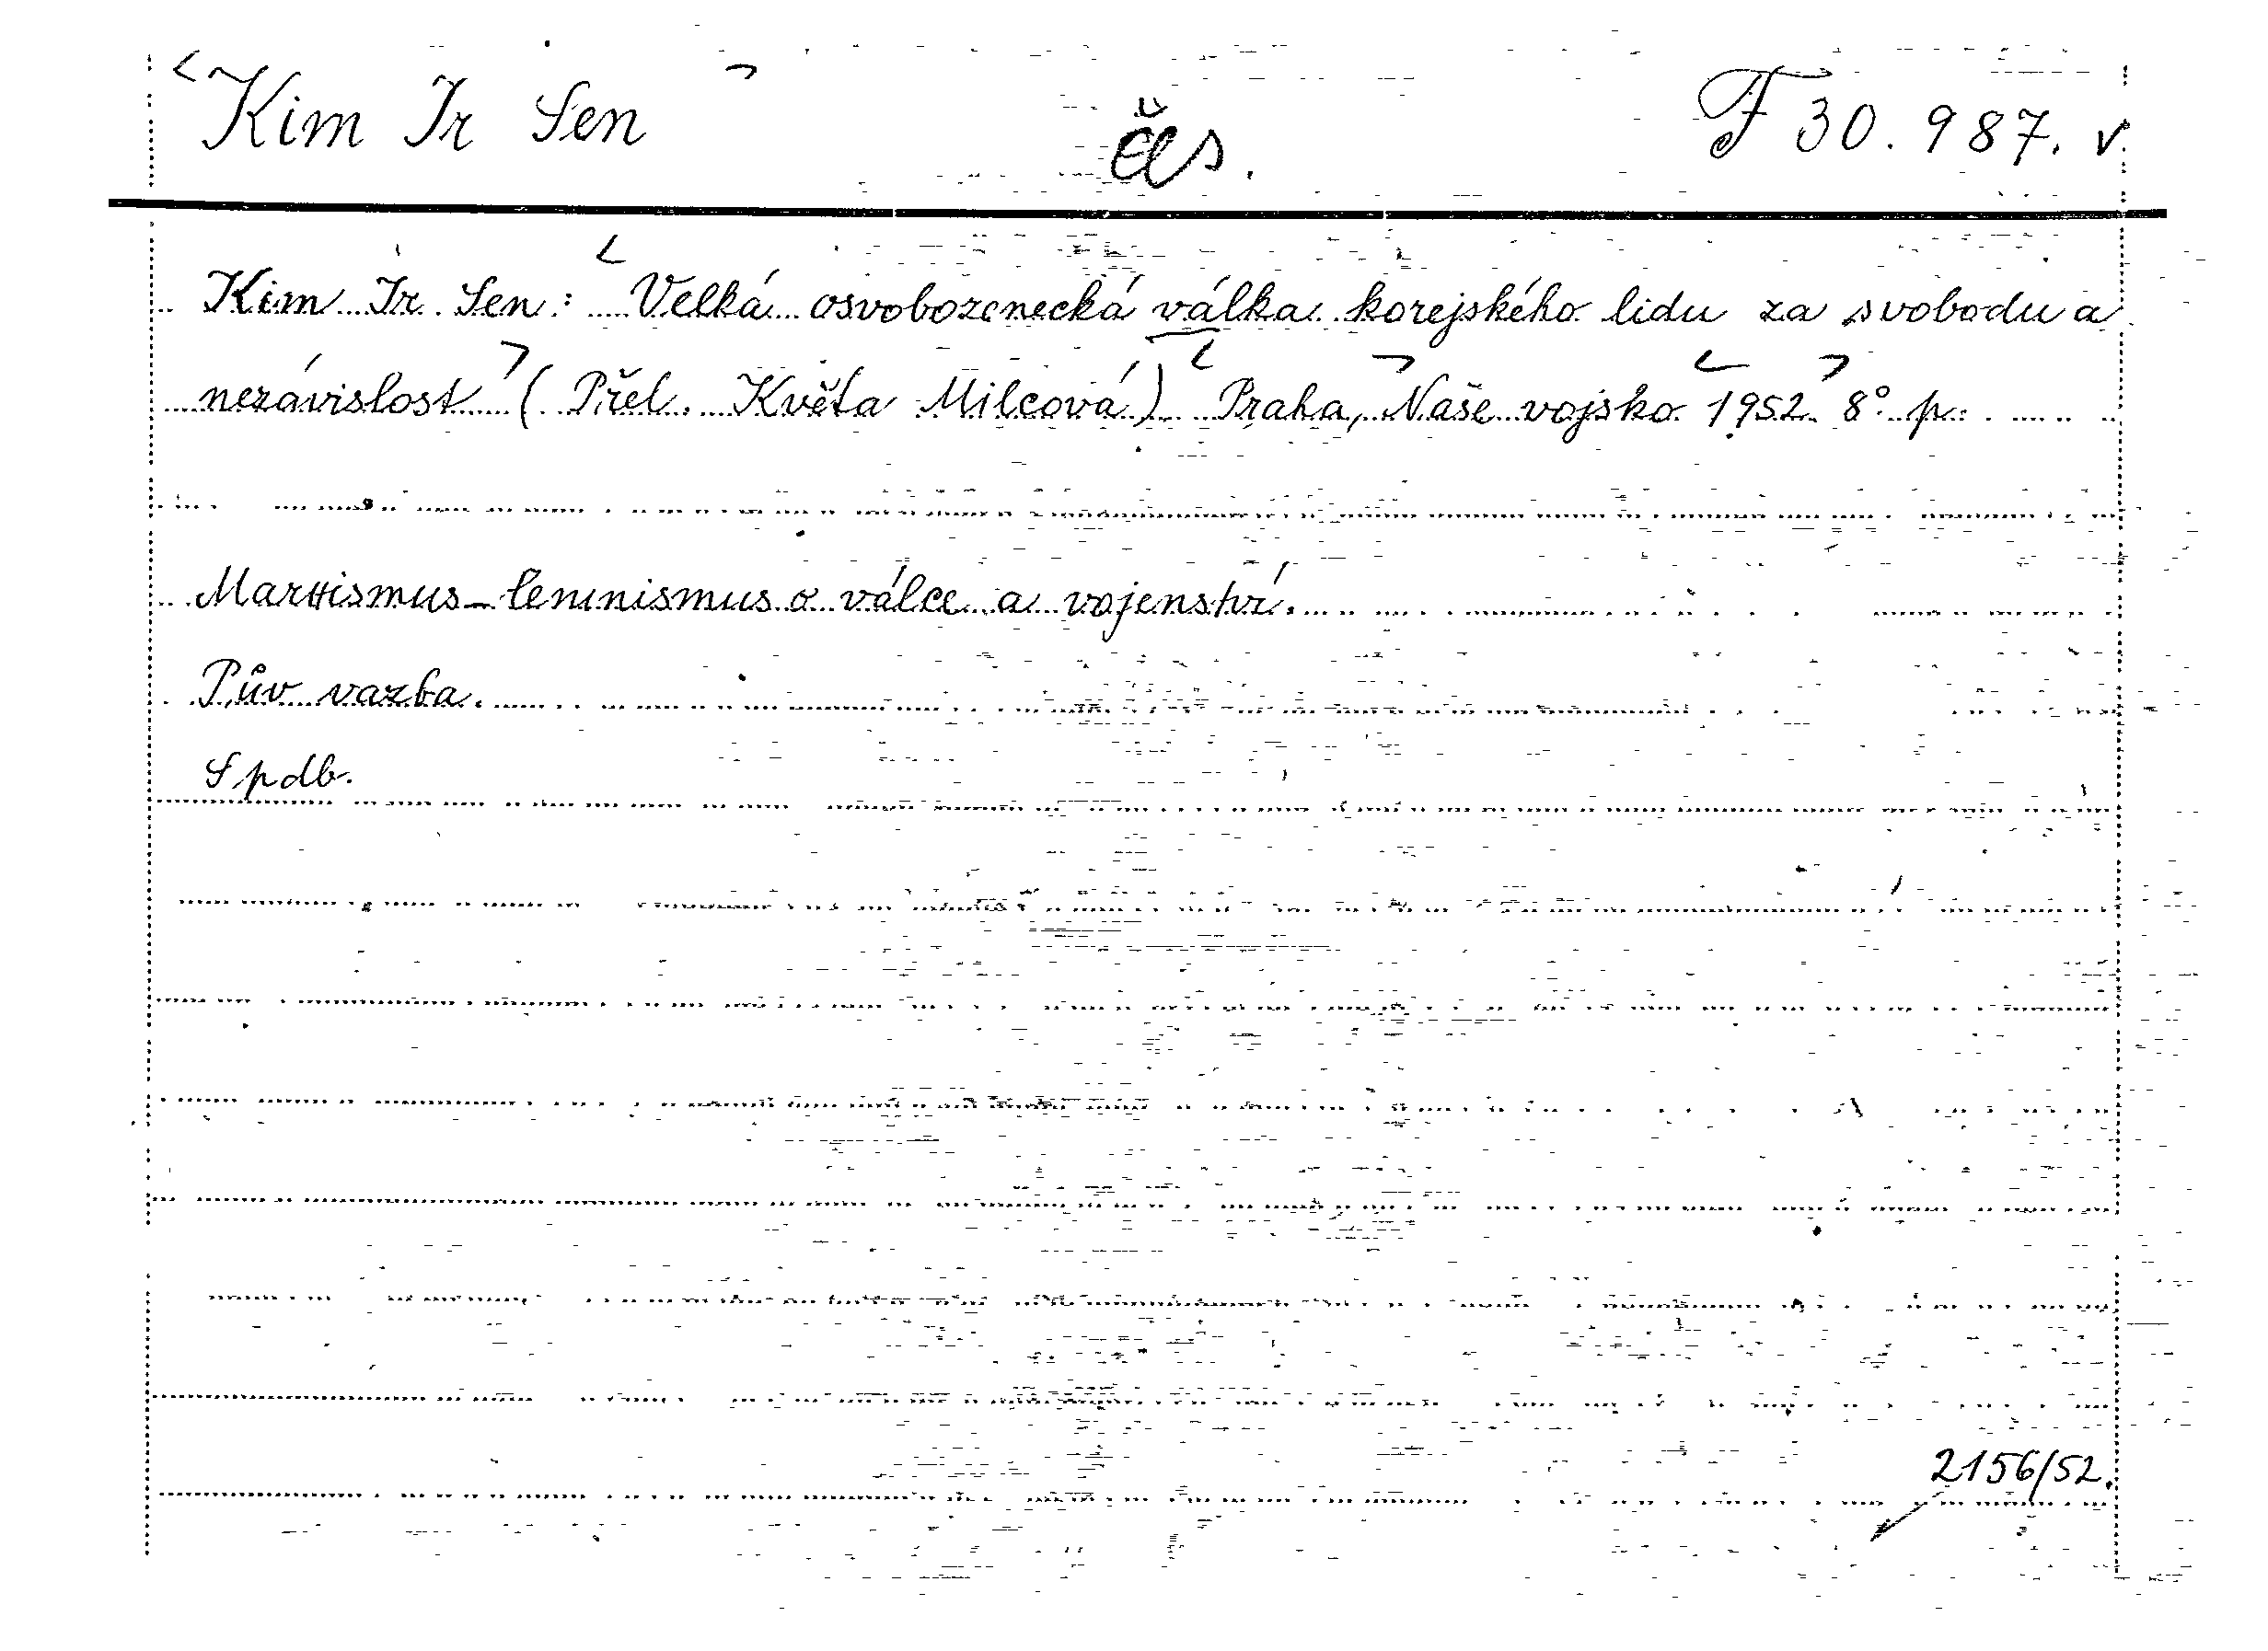 Kim Ir Sen čes. F 30.987. v
Kim Ir Sen: Velká osvobozenecká válka korejského lidu za svobodu a
nezávislost (Přel. Květa Milcová) Praha, Naše vojsko 1952. 8° p.
Marxismus-leninismus o válce a vojenství.
Pův vazba.
Spdb.
2156/52.